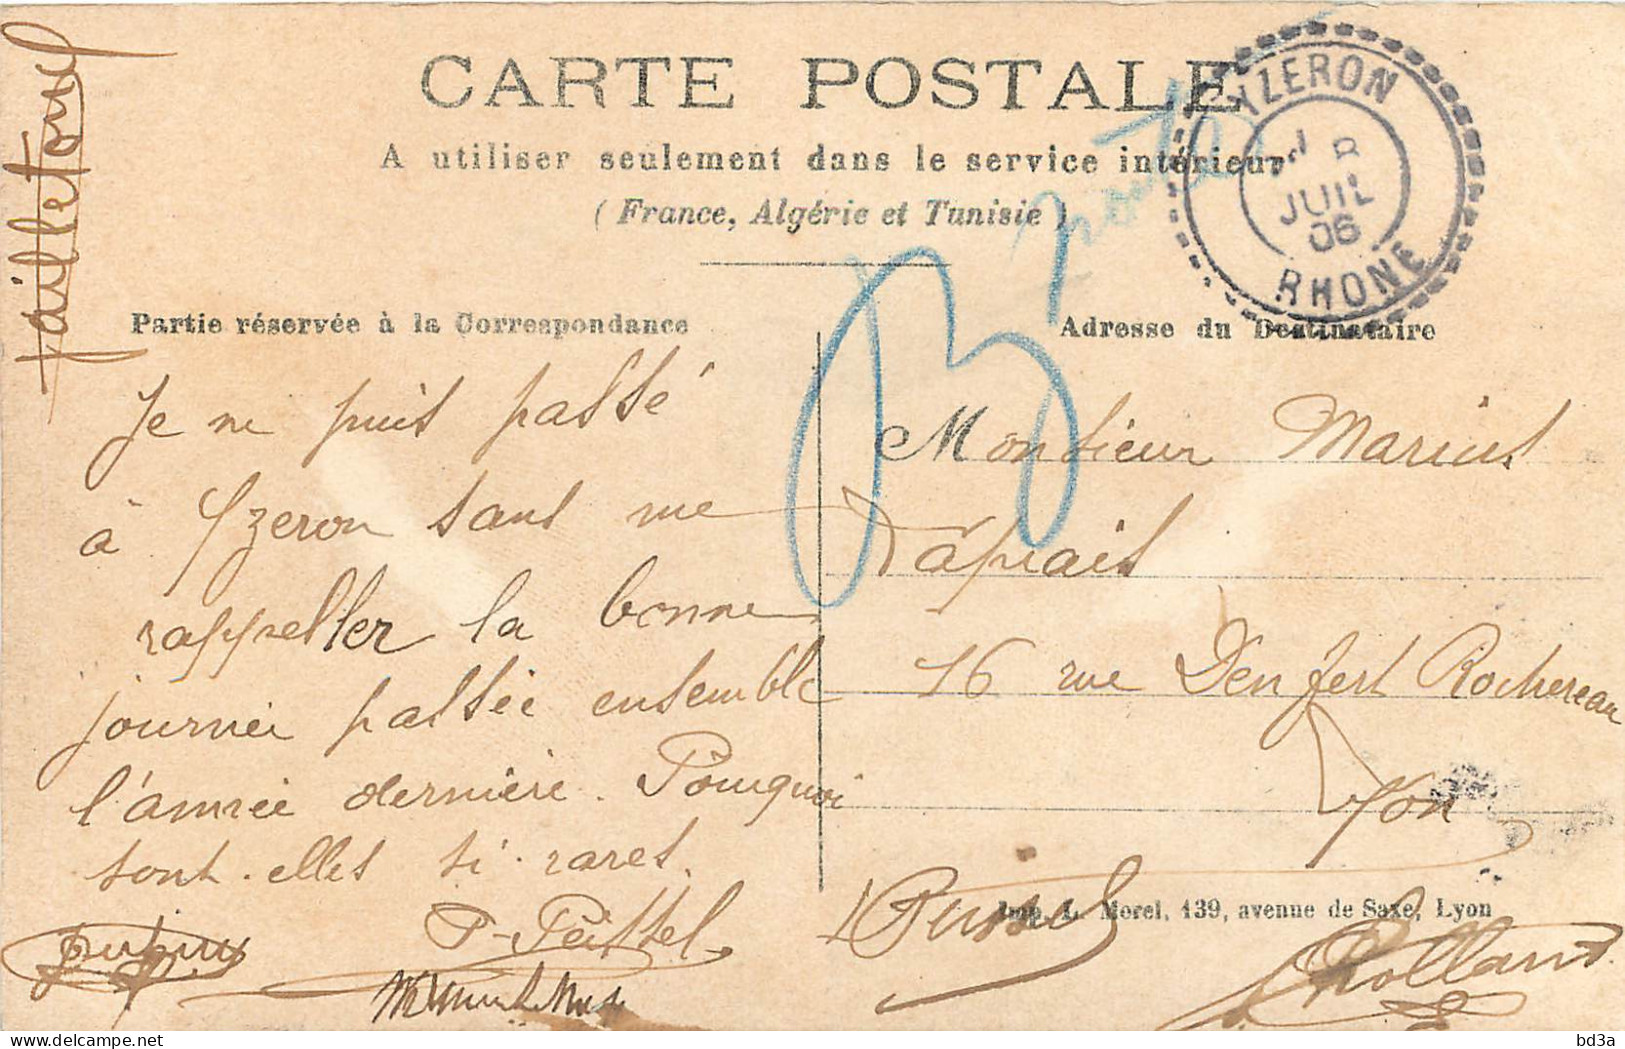 CARTE POSTALE
A utiliser seulement dans le service intérieur
(France, Algérie et Tunisie)
YZERON
JUIL
06
RHONE
Partie réservée à la Correspondance
Adresse du Destinataire
Je ne puis passé
à Yzeron sans me
rappeller la bonne
journée passée ensemble
l'année dernière. Pourquoi
sont-elles si rares.
Monsieur Marius
16 rue Denfert Rochereau
Lyon
Imp. L. Morel, 139, avenue de Saxe, Lyon
Rolland
bd3a